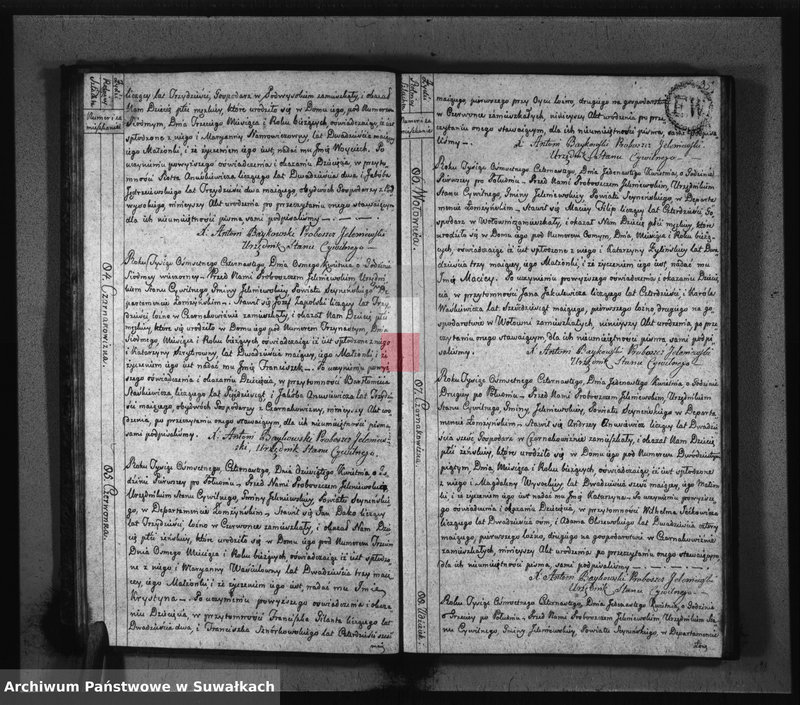 liczący lat Trzydzieści, Gospodarz w Podwysokim zamieszkały, i okazał
Nam Dziecię płci męzkiey, które urodziło się w Domu iego, pod Numerem
Siódmym, Dnia Trzeciego Miesiąca i Roku bieżących, oświadczaiąc, iż iest
spłodzone z niego i Maryanny lat Dwadzieścia maiącey
iego Małżonki, i że życzeniem iego iest, nadać mu Jmię Woyciech. Po
uczynieniu powyższego oświadczenia i okazaniu Dziecięcia, w przytom-
ności Piotra Anuskiewicza liczącego lat Dwadzieścia dwa, i Jakóba
Jędrzeiewskiego lat Trzydzieści dwa maiącego obydwóch Gospodarzy z Pod-
wysokiego, ninieyszy Akt urodzenia po przeczytaniu onego stawaiącym
dla ich nieumieiętności pisma sami podpisaliśmy
X. Antoni Baykowski Proboszcz Jeleniewski
Urzędnik Stanu Cywilnego
94. Czarnakowizna.
Roku Tysiąc Ośmsetnego Czternastego, Dnia Osmego Kwietnia, o Godzinie
Siódmey wieczorney. Przed Nami Proboszczem Jeleniewskim Urzędni-
kiem Stanu Cywilnego Gminy Jeleniewskiey Powiatu Seyneńskiego De-
partamencie Łomżyńskim. Stawił się Józef Zapolski liczący lat Trzy-
dzieści, luźno w Czarnakowiźnie zamieszkały, i okazał Nam Dziecię płci
męzkiey, które urodziło się w Domu iego pod Numerem Trzynastym, Dnia
Siódmego, Miesiąca i Roku bieżących oświadczaiąc iż iest spłodzone z niego
i Katarzyny lat Dwadzieścia maiącey, iego Małżonki i że
życzeniem iego iest nadać mu Jmię Franciszek. Po uczynieniu powyż-
szego oświadczenia i okazaniu Dziecięcia, w przytomności Bartłomieia
Staśkiewicza liczącego lat i Jakóba Anusiewicza lat Trzydzie-
ści maiącego obydwóch Gospodarzy z Czarnakowizny, ninieyszy Akt uro-
dzenia, po przeczytaniu onego stawaiącym dla ich nieumieiętności pisma,
sami podpisaliśmy. X. Antoni Baykowski Proboszcz Jeleniew-
ski, Urzędnik Stanu Cywilnego.
95. Czerwonka.
Roku Tysiąc Ośmsetnego, Czternastego, Dnia Dziewiątego Kwietnia, o Go-
dzinie Pierwszey po Południu. Przed Nami Proboszczem Jeleniewskim,
Urzędnikiem Stanu Cywilnego, Gminy Jeleniewskiey, Powiatu Seyneńskie-
go, w Departamencie Łomżyńskim, Stawił się Jan liczący
lat Trzydzieści, luźno w Czerwonce zamieszkały, i okazał Nam Dzie-
cię płci żeńskiey, które urodziło się w Domu iego pod Numerem Trzecim
Dnia Osmego Miesiąca i Roku bieżących, oświadczaiąc iż iest spłodzo-
ne z niego i Maryanny lat Dwadzieścia trzy maią-
cey, iego Małżonki i że życzeniem iego iest, nadać mu Jmię
Krystyna. Po uczynieniu powyższego oświadczenia i okaza-
niu Dziecięcia, w przytomności Franciszka liczącego lat
Dwadzieścia dwa, i Franciszka lat Czterdzieści sześć
maiącego, pierwszego przy Oycu luźno, drugiego na gospodarstwie
w Czerwonce zamieszkałych, ninieyszy Akt urodzenia po prze-
czytaniu onego stawaiącym, dla ich nieumieiętności pisma, sami podpisa-
liśmy. X. Antoni Baykowski Proboszcz Jeleniewski
Urzędnik Stanu Cywilnego
EW
96. Wołownia.
Roku Tysiąc Ośmsetnego Czternastego, Dnia Jedenastego Kwietnia, o Godzinie
Pierwszey po Południu. Przed Nami Proboszczem Jeleniewskim, Urzędnikiem
Stanu Cywilnego, Gminy Jeleniewskiey, Powiatu Seyneńskiego w Departa-
mencie Łomżyńskim, Stawił się Maciey liczący lat Czterdzieści, Go-
spodarz w Wołowni zamieszkały, i okazał Nam Dziecię płci męzkiey, które
urodziło się w Domu iego pod Numerem Osmym, Dnia Miesiąca i Roku bieżą-
cych, oświadczaiąc iż iest spłodzone z niego i Katarzyny lat Dwa-
dzieścia trzy maiącey, iego Małżonki, i że życzeniem iego iest, nadać mu
Jmię Maciey. Po uczynieniu powyższego oświadczenia i okazaniu Dziecię-
cia, w przytomności Jana Jakubowicza liczącego lat Czterdzieści, i Karola
Waśkiewicza lat Sześćdziesiąt maiącego, pierwszego luźno drugiego na go-
spodarstwie w Wołowni zamieszkałych, ninieyszy Akt urodzenia, po prze-
czytaniu onego stawaiącym, dla ich nieumieiętności pisma sami podpi-
saliśmy. X. Antoni Baykowski Proboszcz Jeleniewski
Urzędnik Stanu Cywilnego
97. Czarnakowizna
Roku Tysiąc Ośmsetnego Czternastego, Dnia Jedenastego Kwietnia o Godzinie
Drugiey po Południu. Przed Nami Proboszczem Jeleniewskim, Urzędnikiem
Stanu Cywilnego, Gminy Jeleniewskiey, Powiatu Seyneńskiego w Departa-
mencie Łomżyńskim. Stawił się Andrzey Anusiewicz liczący lat Dwadzie-
ścia sześć Gospodarz w Czarnakowiźnie zamieszkały, i okazał Nam Dziecię
płci żeńskiey, które urodziło się w Domu iego pod Numerem Dwudziestym
piątym, Dnia, Miesiąca i Roku bieżących, oświadczaiąc, iż iest spłodzone
z niego i Magdaleny lat Dwadzieścia sześć maiącey, iego Małżon-
ki, i że życzeniem iego iest nadać mu Jmię Katarzyna. Po uczynieniu powyższe-
go oświadczenia i okazaniu Dziecięcia, w przytomności Wilhelma
liczącego lat Dwadzieścia ośm, i Adama Olszewskiego lat Dwadzieścia cztery
maiącego, pierwszego luźno, drugiego na gospodarstwie w Czarnakowiźnie
zamieszkałych, ninieyszy Akt urodzenia, po przeczytaniu onego stawaiącym
dla ich nieumieiętności pisma, sami podpisaliśmy
X. Antoni Baykowski Proboszcz Jeleniewski
Urzędnik Stanu Cywilnego
98.
Roku Tysiąc Ośmsetnego Czternastego, Dnia Jedenastego Kwietnia, o Godzinie
Trzeciey po Południu, Przed Nami Proboszczem Jeleniewskim, Urzędnikiem Sta-
nu Cywilnego, Gminy Jeleniewskiey, Powiatu Seyneńskiego, w Departamencie
Archiwum Państwowe w Suwałkach